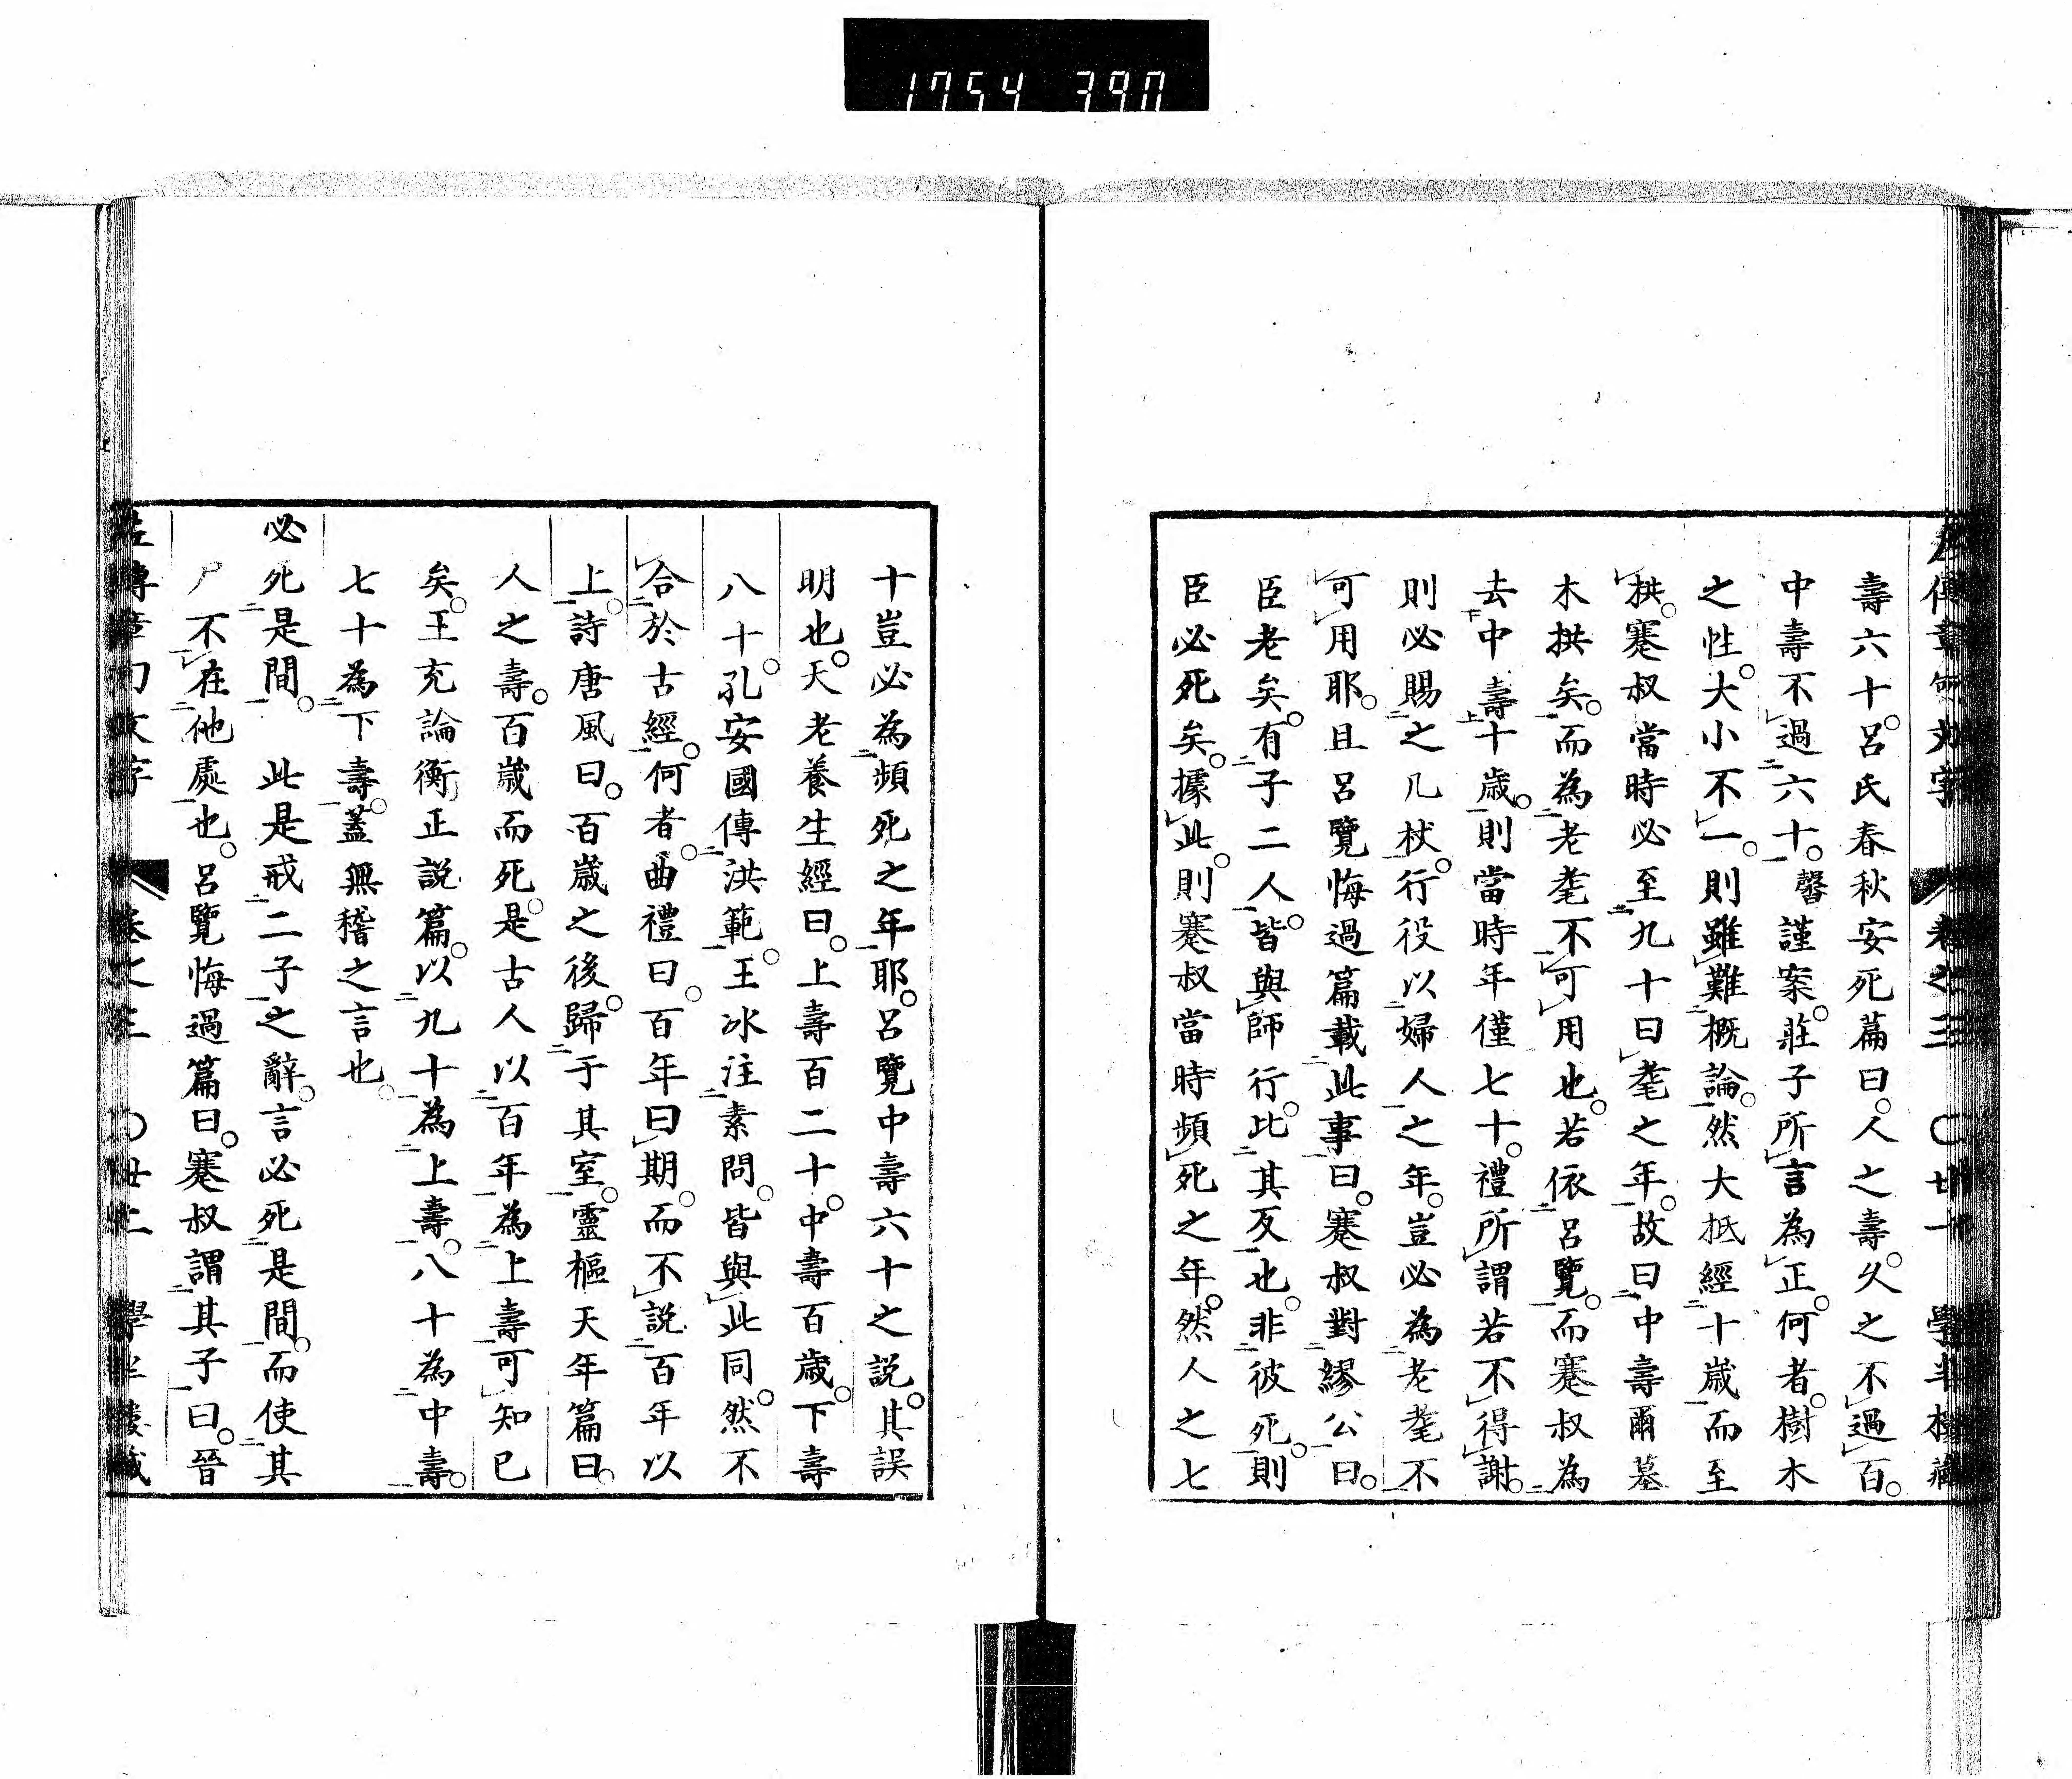 1754 390
左傳章句文字 卷之三 〇廿一 學半樓藏
壽六十。呂氏春秋安死篇曰。人之壽。久之不過百。
中壽不過六十。馨謹案。莊子所言為正。何者。樹木
之性。大小不一。則雖難概論。然大抵經十歲而至
拱。蹇叔當時必至九十曰耄之年。故曰中壽爾墓
木拱矣。而為老耄不可用也。若依呂覽。而蹇叔為
去中壽十歲。則當時年僅七十。禮所謂若不得謝。
則必賜之几杖。行役以婦人之年。豈必為老耄不
可用耶。且呂覽悔過篇載此事曰。蹇叔對繆公曰。
臣老矣。有子二人。皆與師行。比其反也。非彼死。則
臣必死矣。據此。則蹇叔當時頻死之年。然人之七
十豈必為頻死之年耶。呂覽中壽六十之説。其誤
明也。天老養生經曰。上壽百二十。中壽百歲。下壽
八十。孔安國傳洪範。王冰注素問。皆與此同。然不
合於古經。何者。曲禮曰。百年曰期。而不説百年以
上。詩唐風曰。百歲之後。歸于其室。靈樞天年篇曰。
人之壽。百歲而死。是古人以百年為上壽可知已
矣。王充論衡正説篇。以九十為上壽。八十為中壽。
七十為下壽。蓋無稽之言也。
必死是間。 此是戒二子之辭。言必死是間。而使其
尸不在他處也。呂覽悔過篇曰。蹇叔謂其子曰。晉
左傳章句文字 卷之三 〇廿二 學半樓藏